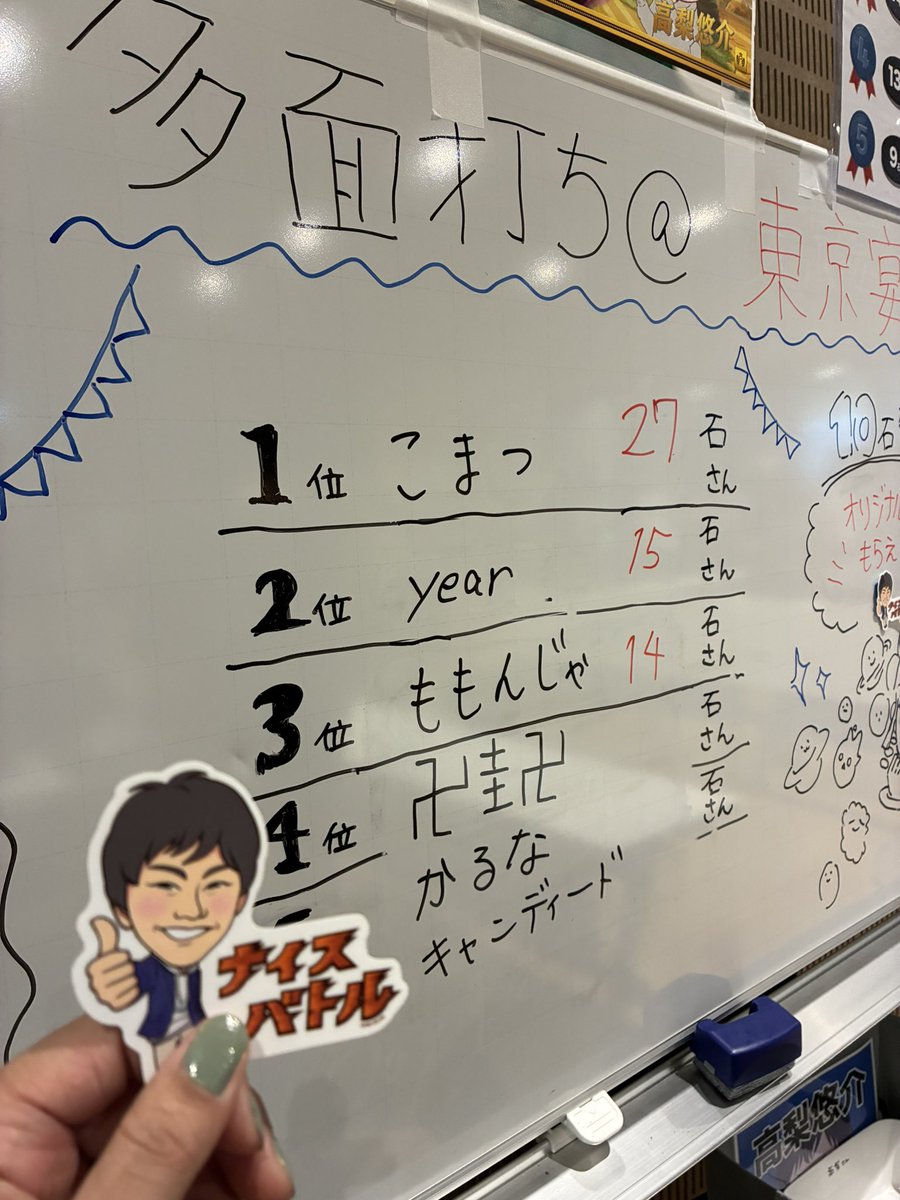 高梨悠介
4
13
5
9
多面打ち@
東京宴
1位 こまつ 27石さん
2位 year 15石さん
3位 ももんじゃ 14石さん
4位 卍圭卍 石さん
かるな 石さん
キャンディード
10石
オリジナル
もらえ
ナイス
バトル
高梨悠介